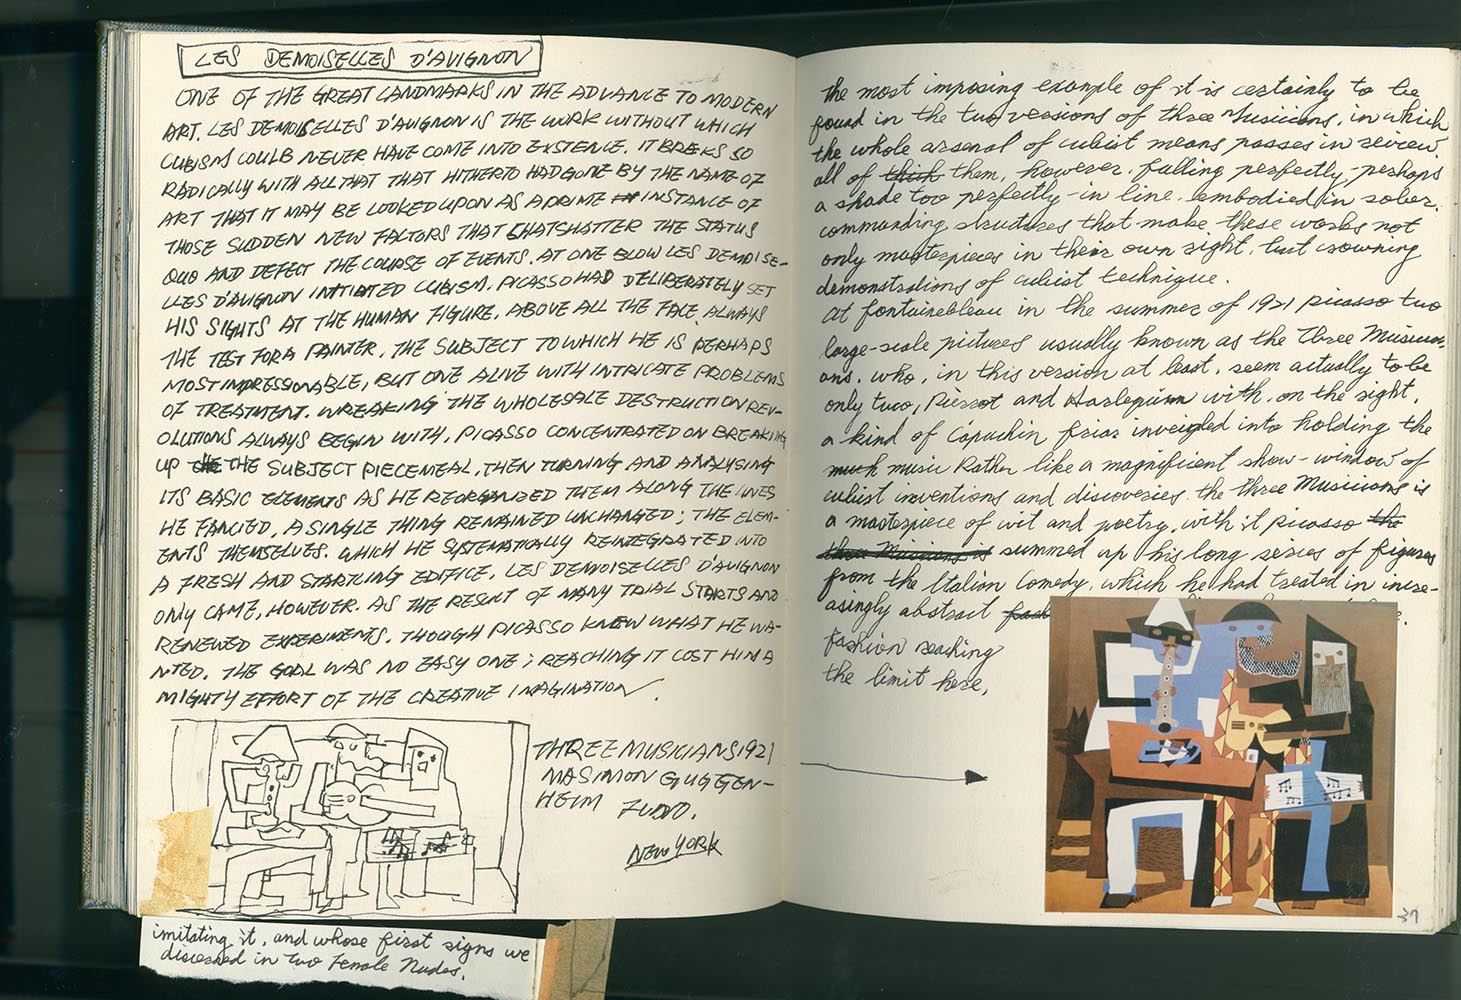 LES DEMOISELLES D'AVIGNON
ONE OF THE GREAT LANDMARKS IN THE ADVANCE TO MODERN
ART. LES DEMOISELLES D'AVIGNON IS THE WORK WITHOUT WHICH
CUBISM COULB NEVER HAVE COME INTO EXSTENCE. IT BREKS SO
RADICALLY WITH ALL THAT THAT HITHERTO HAD GONE BY THE NAME OF
ART THAT IT MAY BE LOOKED UPON AS A PRIME INSTANCE OF
THOSE SUDDEN NEW FALTORS THAT SHATTER THE STATUS
QUO AND DEFECT THE COURSE OF EVENTS. AT ONE BLOW LES DEMOISE-
LLES D'AVIGNON INITIATED CUBISM. PICASSO HAD DELIBERATELY SET
HIS SIGHTS AT THE HUMAN FIGURE, ABOVE ALL THE FACE, ALWAYS
THE TEST FOR A PAINTER, THE SUBJECT TO WHICH HE IS PERHAPS
MOST IMPRESSIONABLE, BUT ONE ALIVE WITH INTRICATE PROBLEMS
OF TREATMENT. WREAKING THE WHOLESALE DESTRUCTION REV-
OLUTIONS ALWAYS BEGIN WITH, PICASSO CONCENTRATED ON BREAKING
UP THE THE SUBJECT PIECEMEAL, THEN TURNING AND ANALYSING
ITS BASIC ELEMENTS AS HE REORGANIZED THEM ALONG THE LINES
HE FANCIED. A SINGLE THING REMAINED UNCHANGED; THE ELEM-
ENTS THEMSELVES. WHICH HE SYSTEMATICALLY REINTEGRATED INTO
A FRESH AND STARTLING EDIFICE. LES DEMOISELLES D'AVIGNON
ONLY CAME, HOWEVER. AS THE RESULT OF MANY TRIAL STARTS AND
RENEWED EXPERIMENTS. THOUGH PICASSO KNEW WHAT HE WA-
NTED. THE GOAL WAS NO EASY ONE; REACHING IT COST HIM A
MIGHTY EFFORT OF THE CREATIVE IMAGINATION.
THREE MUSICIANS 1921
MASIMON GUGGEN-
HEIM FUND.
NEW YORK
imitating it, and whose first signs we
discerned in two Female Nudes.
the most imposing example of it is certainly to be
found in the two versions of three Musicians, in which
the whole arsenal of cubist means passes in review.
all of think them, however. falling perfectly-perhaps
a shade too perfectly-in line. embodied in sober.
commanding structures that make these works not
only masterpieces in their own right, but crowning
demonstrations of cubist technique.
at fontainebleau in the summer of 1921 picasso two
large-scale pictures usually known as the Three Musici-
ans. who, in this version at least, seem actually to be
only two, Pierrot and Harlequin with, on the right,
a kind of Capuchin friar inveigled into holding the
much music Rather like a magnificent show-window of
cubist inventions and discoveries. the three Musicians is
a masterpiece of wit and poetry. with it picasso the
three Musicians is summed up his long series of figures
from the Italian Comedy, which he had treated in incre-
asingly abstract
fashion reaching
the limit here.
37